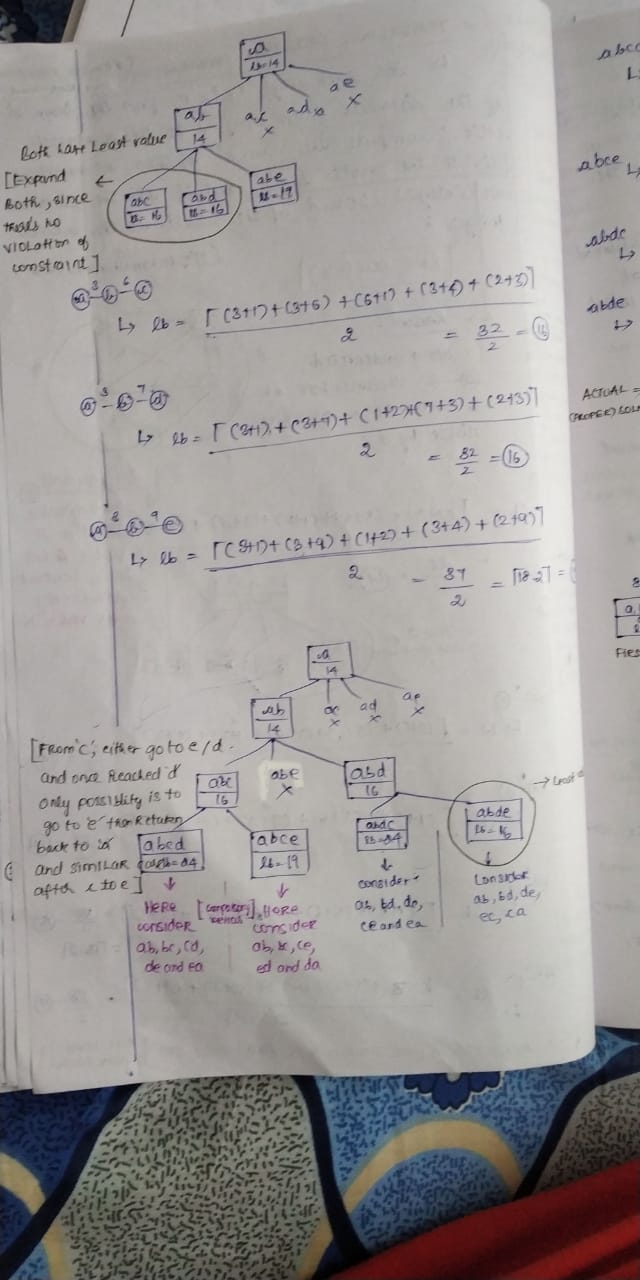 a
lb=14
ab
14
ac
x
ad x
ae
x
Both have Least value
[Expand
Both, since
there's no
violation of
constraint]
abc
lb = 16
abd
lb = 16
abe
lb = 19
a 3 b 6 c
↳ lb = ⌈(3+1)+(3+6)+(6+1)+(3+4)+(2+3)⌉
2
= 32/2 = 16
a 3 b 7 d
↳ lb = ⌈(3+1)+(3+7)+(1+2)+(7+3)+(2+3)⌉
2
= 32/2 = 16
a 3 b 9 e
↳ lb = ⌈(3+1)+(3+9)+(1+2)+(3+4)+(2+9)⌉
2
= 37/2 = ⌈18.2⌉ =
a
14
ab
14
ac
x
ad
x
ae
x
[From 'c', either go to e/d.
and once Reached 'd'
only possibility is to
go to 'e' then Return
back to 'a'
and similar
after c to e]
abc
16
abe
x
abd
16
→ Least
abcd
lb=24
abce
lb=19
abdc
lb=24
abde
lb=16
Here
consider
ab, bc, cd,
de and ea
Here
consider
ab, bc, ce,
ed and da
consider
ab, bd, dc,
ce and ea
Consider
ab, bd, de,
ec, ca
abcd
abce ↳
abdc
↳
abde
↳
ACTUAL =
(PROPER) SOL